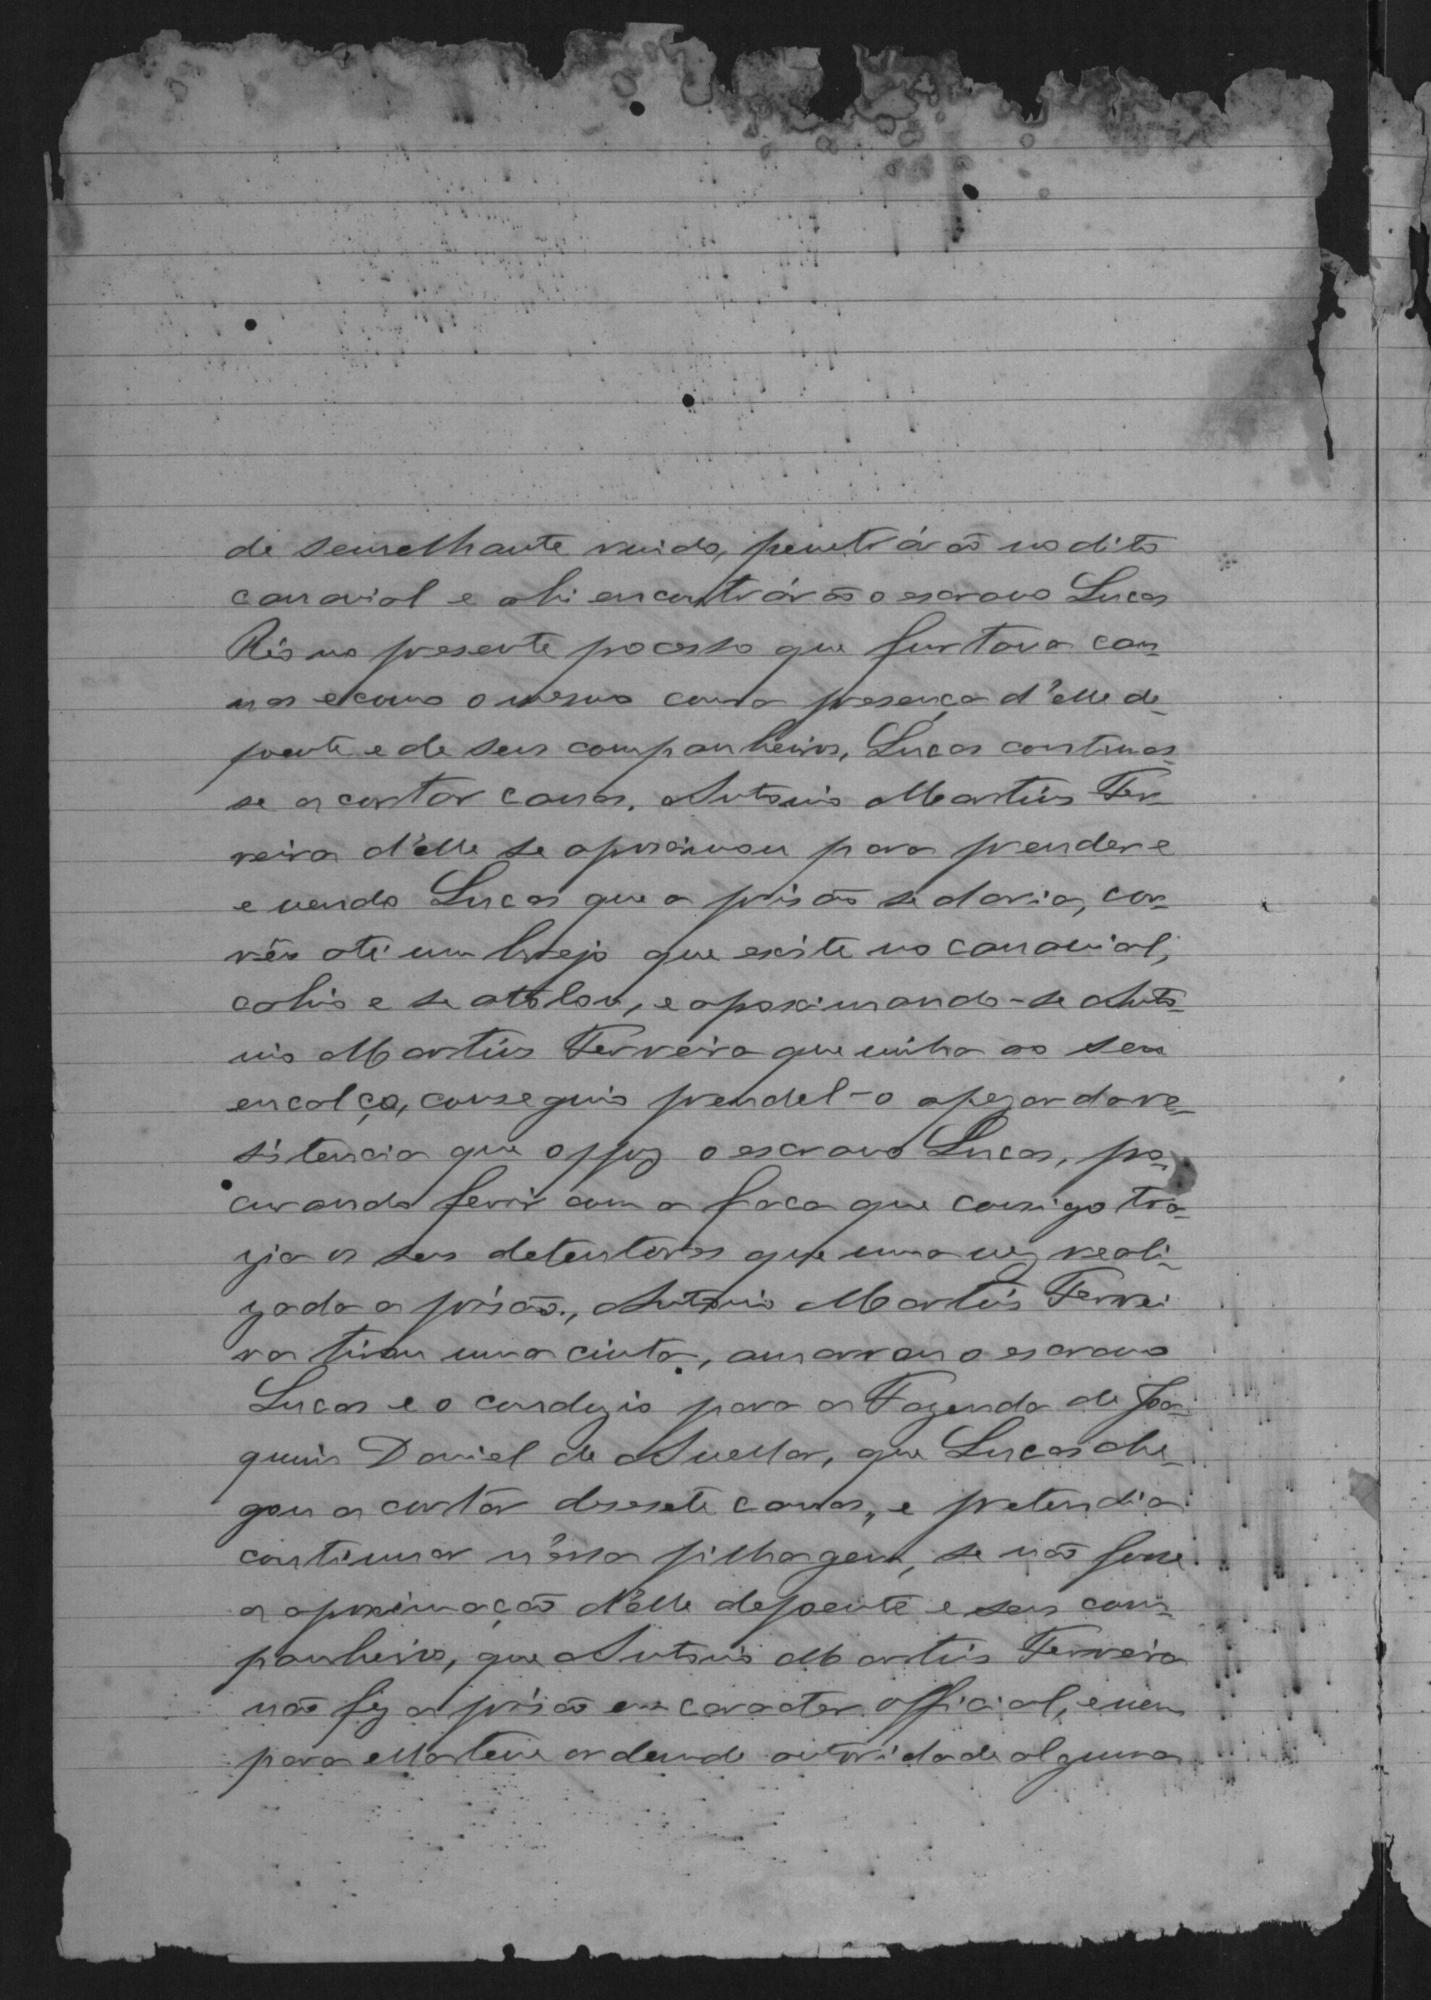 de semelhante ruido, penetrárão no dito
canavial e ahi encontrárão o escravo Lucas
Réo no presente processo que furtava can-
nas e como o mesmo com a presença d'elle de-
poente e de seus companheiros, Lucas continuas-
se a cortar canas. Antonio Martins Fer-
reira d'elle se aproximou para prender e
e vendo Lucas que a prisão se daria, cor-
rêo até um brejo que existe no canavial,
cahio e se atolou, e aproximando-se Anto-
nio Martins Ferreira que vinha ao seu
encalço, conseguio prendel-o apezar da re-
sistencia que oppoz o escravo Lucas, pro-
curando ferir com a faca que comsigo tra-
zia os seus detentores que uma vez reali-
zada a prisão, Antonio Martins Ferrei
ra tirou uma cinta, amarrou o escravo
Lucas e o conduzio para a Fazenda de Joa-
quim Daniel de Avellar, que Lucas che-
gou a cortar desesete canas, e pretendia
continuar n'essa pilhagem, se não fosse
a aproximação d'elle depoente e seus com-
panheiros, que Antonio Martins Ferreira
não fez a prisão em caracter official, e nem
para ella teve ordem de autoridade alguma